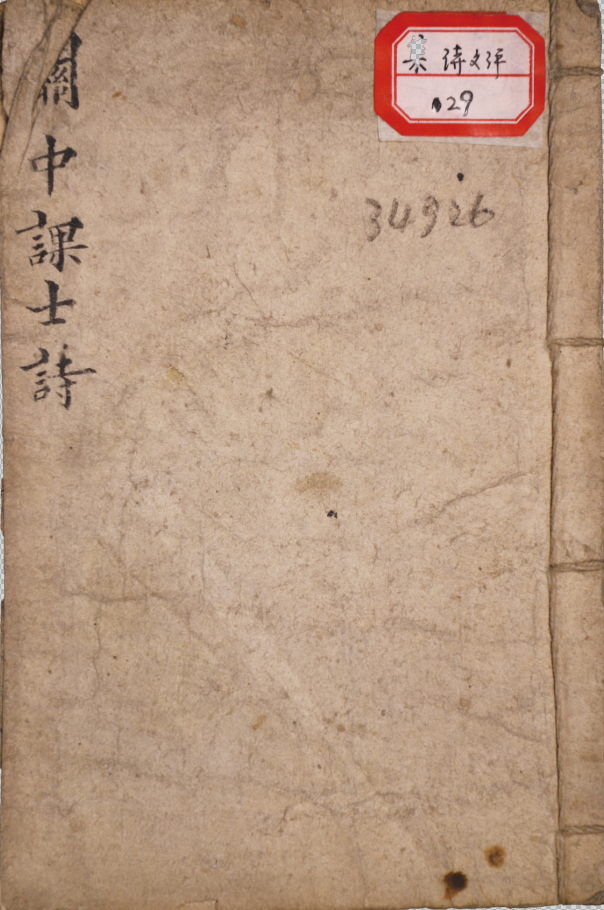 關中課士詩
集 诗文评
29
34926